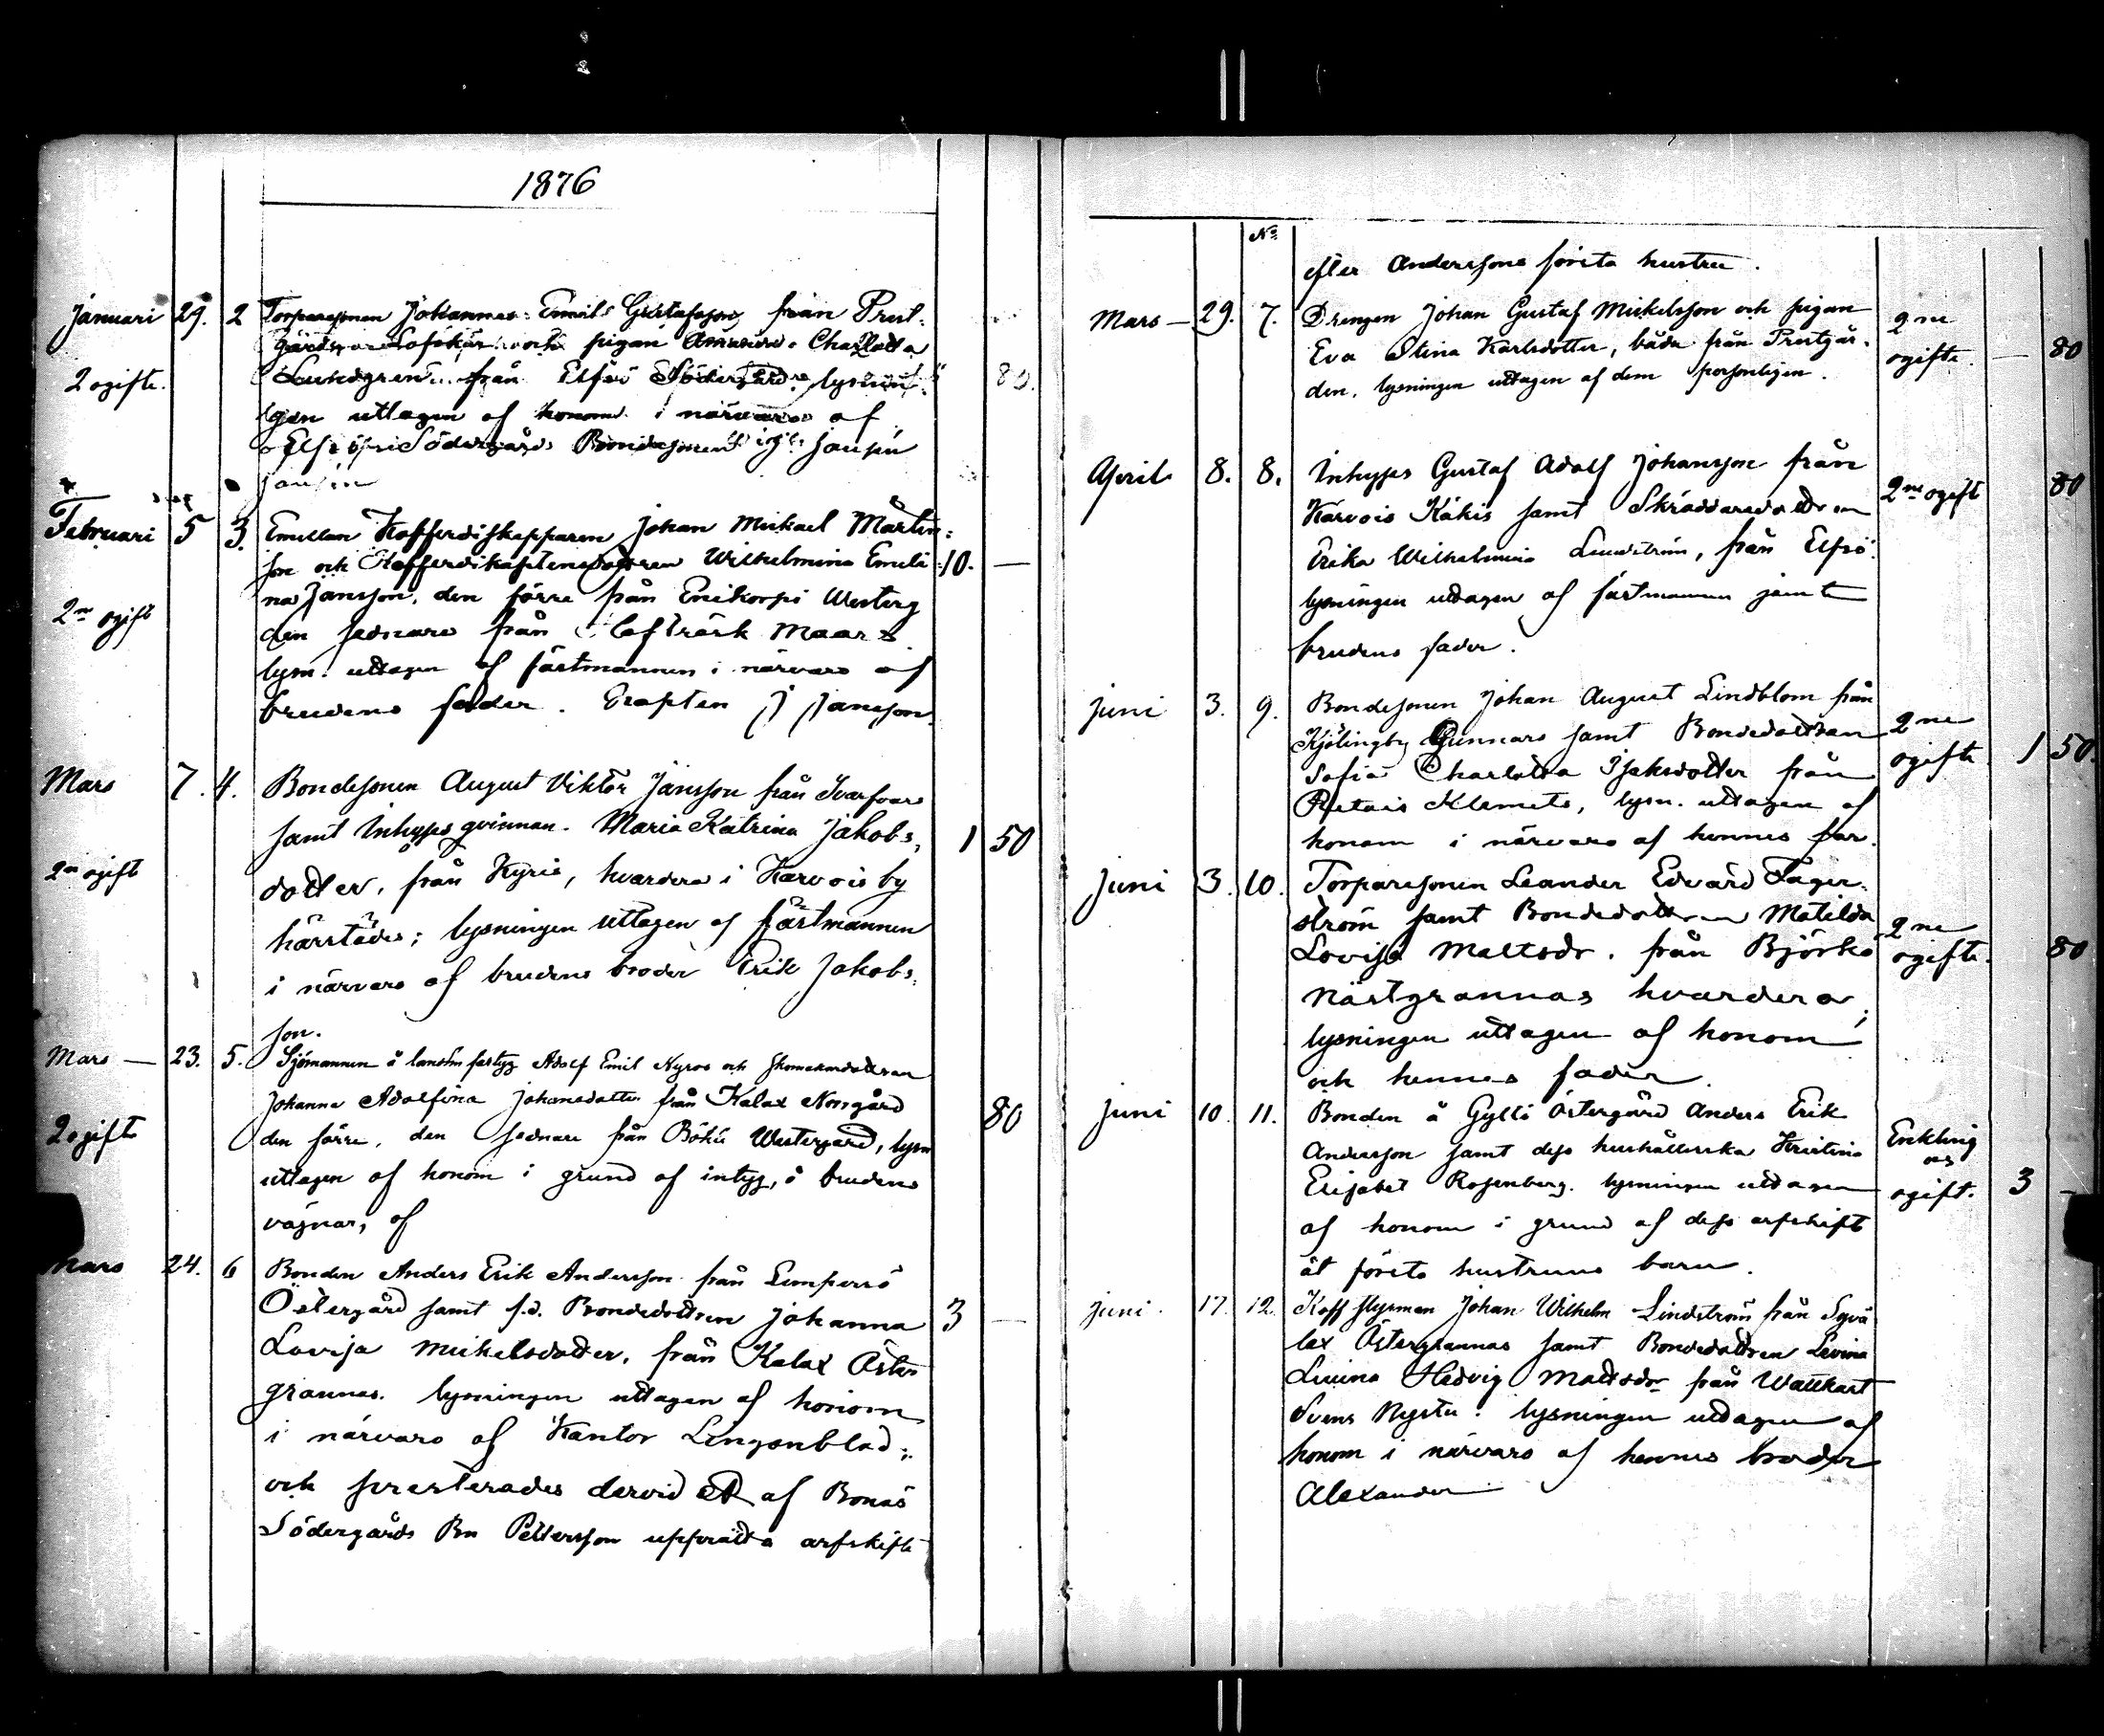 1876
Januari 29. 2 Torparesonen Johannes Emil Gustafsson från Prest-
gårds Löfskär och pigan Amanda Charlotta
2 ogifte. Lundgren från Elfsö Södergård, lysnin- 80.
gen uttagen af honom i närvaro af
Elfsö Södergårds Bondesonen Jansén
Jansén
Februari 5 3. Emellan Kofferdiskepparen Johan Mickael Martin-
son och Kofferdikaptensdottren Wilhelmina Emeli- 10. —
na Jansson, den förre från Enikorpi Westerg
2ne ogift den sednare från Olofträsk Maars
lysn. uttagen af fästmannen i närvaro af
brudens fader. J Jansson.
Mars 7. 4. Bondesonen August Viktor Jansson från Ivarsoars
samt Inhyses qvinnan Maria Katrina Jakobs- 1 50
2ne ogift dotter, från Kyris, hvardera i Karvois by
härstädes; lysningen uttagen af fästmannen
i närvaro af brudens broder Erik Jakobs-
son.
Mars — 23. 5. Sjömannen å fartyg Adolf Emil Nyroos och Skomakaredottren
Johanna Adolfina Johansdotter från Kalax Norrgård 80
2 ogifte den förre, den sednare från Böhle Westergård, lysn
uttagen af honom i grund af intyg, å brudens
vägnar, af
Mars 24. 6 Bonden Anders Erik Andersson från Limpersö
Östergård samt f.d. Bondedottren Johanna 3 —
Lovisa Mickelsdotter, från Kalax Öster
grannas. lysningen uttagen af honom
i närvaro af Kantor Lingonblad;
och presterades dervid ett af Bonäs
Södergårds Bn Pettersson upprätta arfskifte
No
efter Anderssons första hustru.
Mars — 29. 7. Drengen Johan Gustaf Mickelsson och pigan 2ne
Eva Stina Karlsdotter, båda från Prestgår- ogifte. — 80
den, lysningen uttagen af dem personligen.
April 8. 8. Inhyses Gustaf Adolf Johansson från
Karvois Käkis samt Skräddaredottren 2ne ogift 80
Erika Wilhelmina Lundström, från Elfsö.
lysningen uttagen af fästmannen jämte
brudens fader.
Juni 3. 9. Bondesonen Johan August Lindblom från
Kjölingby Gunnars samt Bondedottran 2ne
Sofia Charlotta Isaksdotter från ogifte 1 50.
Retais Klemets, lysn. uttagen af
honom i närvaro af hennes far.
Juni 3. 10. Torparesonen Leander Edvard Lager-
ström samt Bondedottren Matilda 2ne
Lovisa Mattsdr. från Björkö ogifte. 80
Nästgrannas hvardera,
lysningen uttagen af honom
och hennes fader.
Juni 10. 11. Bonden å Gyltö Östergård Anders Erik
Andersson samt dess hushållerska Kristina Enkling
Elisabet Rosenberg. lysningen uttagen och ogift. 3 —
af honom i grund af dess arfskift
åt första hustruns barn.
Juni. 17. 12. Koff styrman Johan Wilhelm Lindström från Syvä
lax Östergrannas samt Bondedottren Levina
Levina Hedvig Mattsdr från Wattkast
Svens Nystu. lysningen uttagen af
honom i närvaro af hennes broder
Alexander